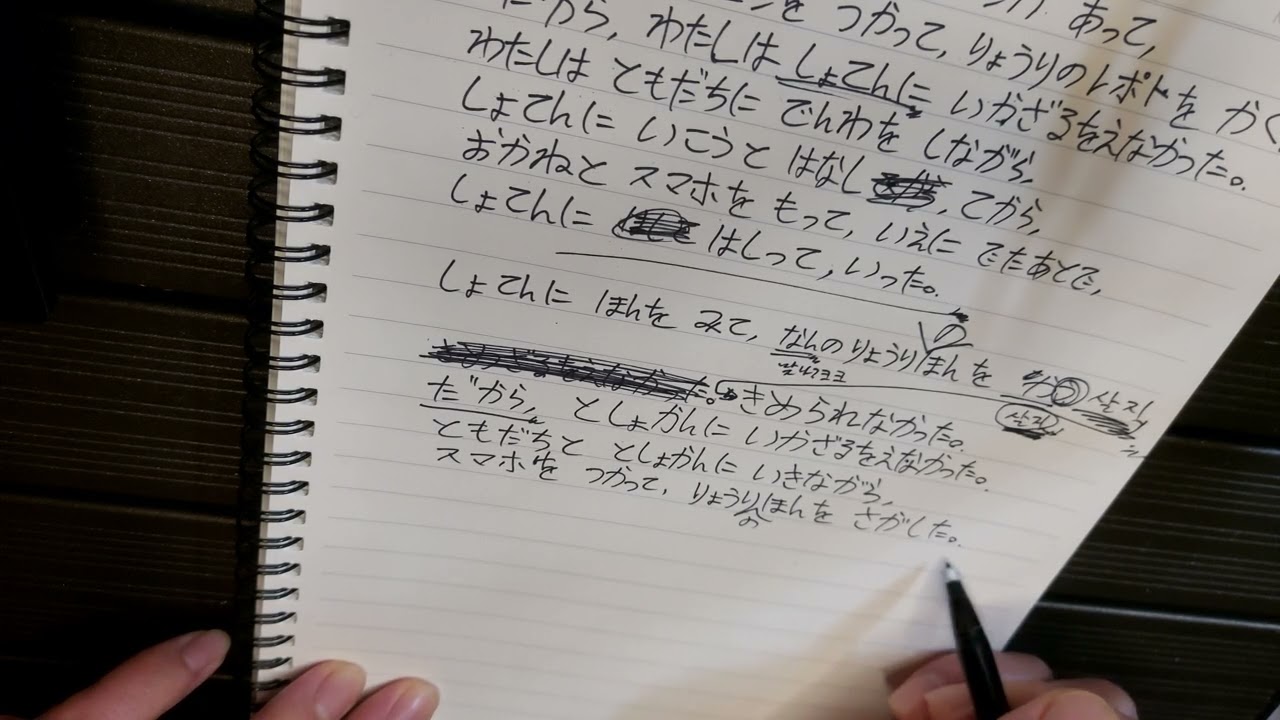 つかって, りょうりのレポトを かく あって,
だから, わたしは しょてんに いかざるをえなかった。
わたしは ともだちに でんわを しながら,
しょてんに いこうと はなし, てから,
おかねと スマホを もって, いえに でたあとで,
しょてんに はしって, いった。
しょてんに ほんを みて, なんの りょうりのほんを
きめられなかった。
だから, としょかんに いかざるをえなかった。
ともだちと としょかんに いきながら,
スマホを つかって, りょうりのほんを さがした。